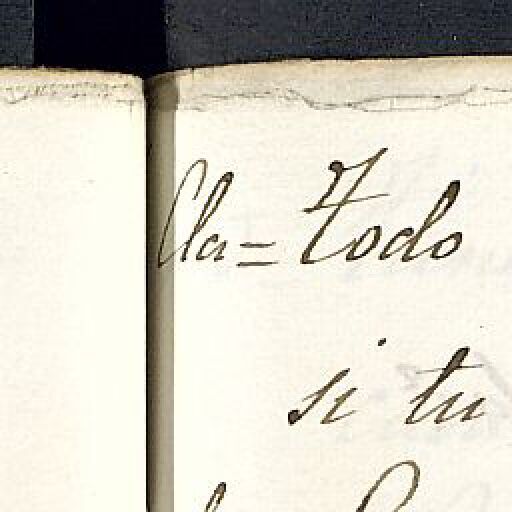 Cla= Todo
si tu